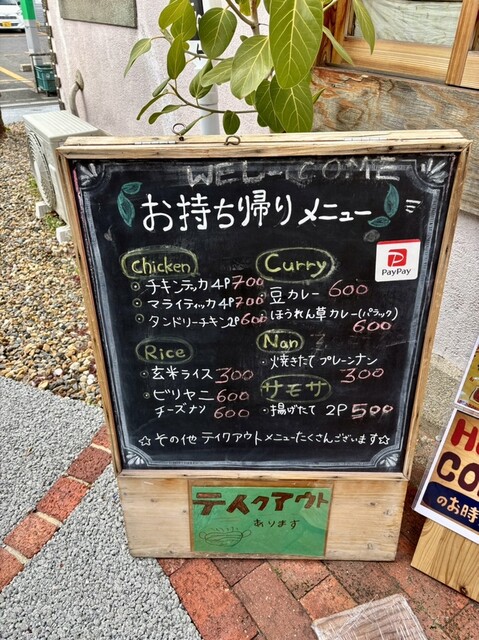 WELCOME
お持ち帰りメニュー
PayPay
Chicken
・チキンティッカ4P 700
・マライティッカ4P 700
・タンドリーチキン2P 600
Curry
・豆カレー 600
・ほうれん草カレー(パラック)
600
Rice
・玄米ライス 300
・ビリヤニ 600
チーズナン 600
Nan
・焼きたて プレーンナン
300
サモサ
・揚げたて 2P 500
☆その他 テイクアウトメニューたくさんございます☆
テイクアウト
あります
のお時